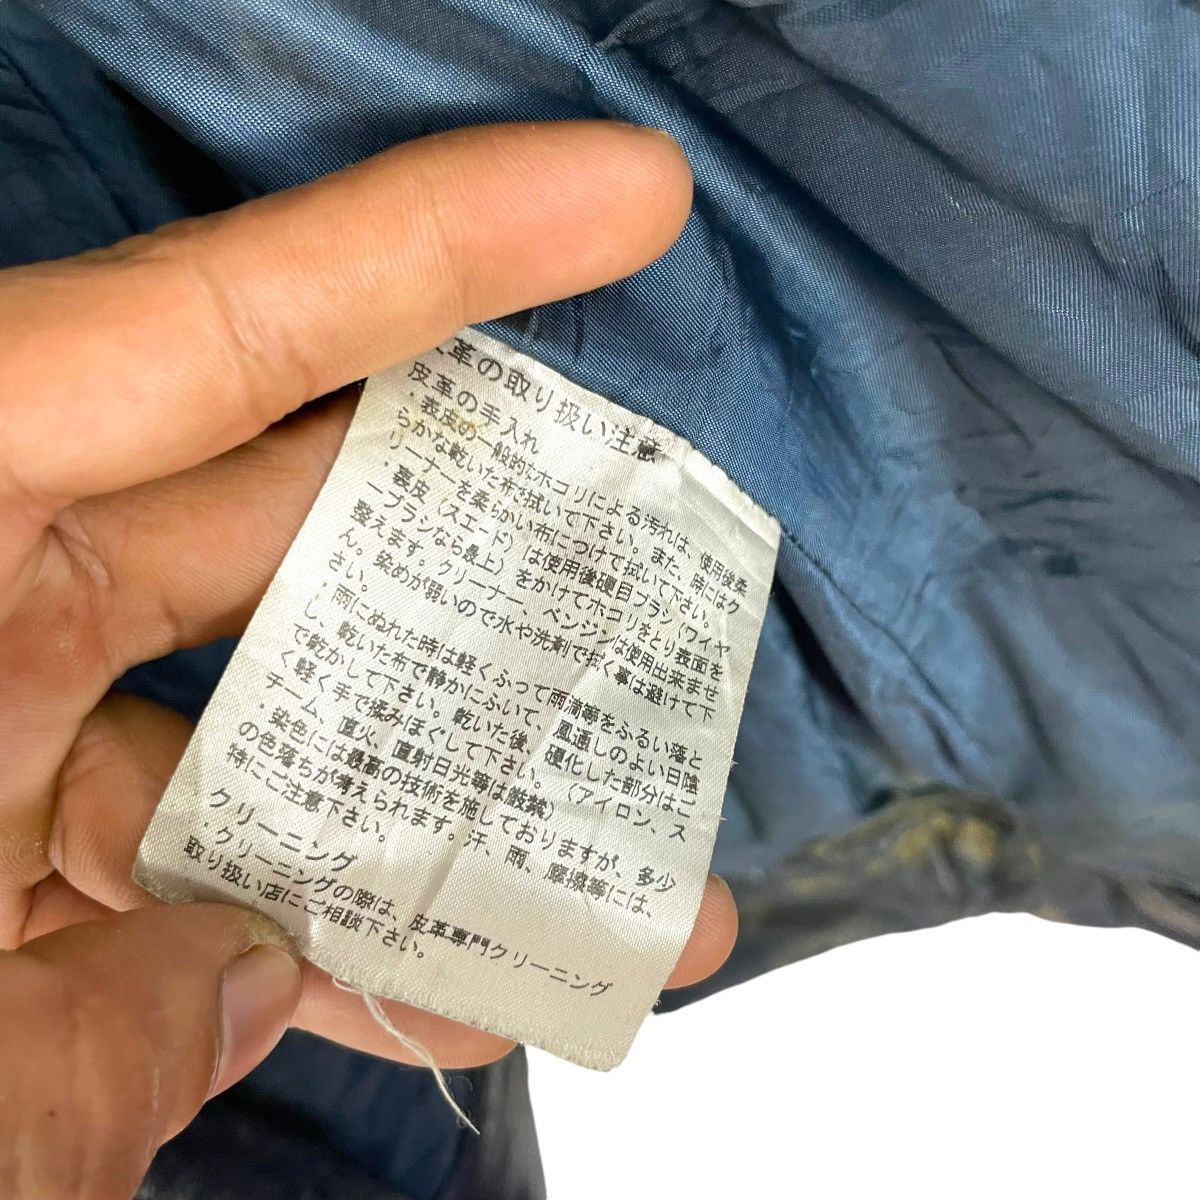 革の取り扱い注意
皮革の手入れ
・表皮の一般的なホコリによる汚れは、使用後柔
らかな乾いた布で拭いて下さい。また、時にはク
リーナーを柔らかい布につけて拭いて下さい。
・裏皮(スエード)は使用後硬目ブラシ(ワイヤ
ーブラシなら最上)をかけてホコリをとり表面を
整えます。クリーナー、ベンジンは使用出来ませ
ん。染めが弱いので水や洗剤で拭く事は避けて下
さい。
・雨にぬれた時は軽くふって雨滴等をふるい落と
し、乾いた布で静かにふいて、風通しのよい日陰
で乾かして下さい。乾いた後、硬化した部分はご
く軽く手で揉みほぐして下さい。(アイロン、ス
チーム、直火、直射日光等は厳禁)
・染色には最高の技術を施しておりますが、多少
の色落ちが考えられます。汗、雨、摩擦等には、
特にご注意下さい。
クリーニング
・クリーニングの際は、皮革専門クリーニング
取り扱い店にご相談下さい。